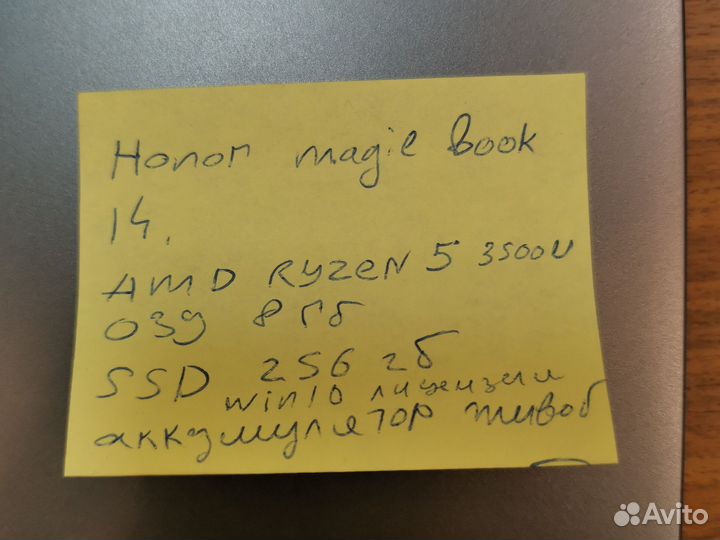 Honor magic book
14.
AMD RyZEN 5 3500U
ОЗУ 8 Гб
SSD 256 гб
win10 лицензия
аккумулятор живой
Avito